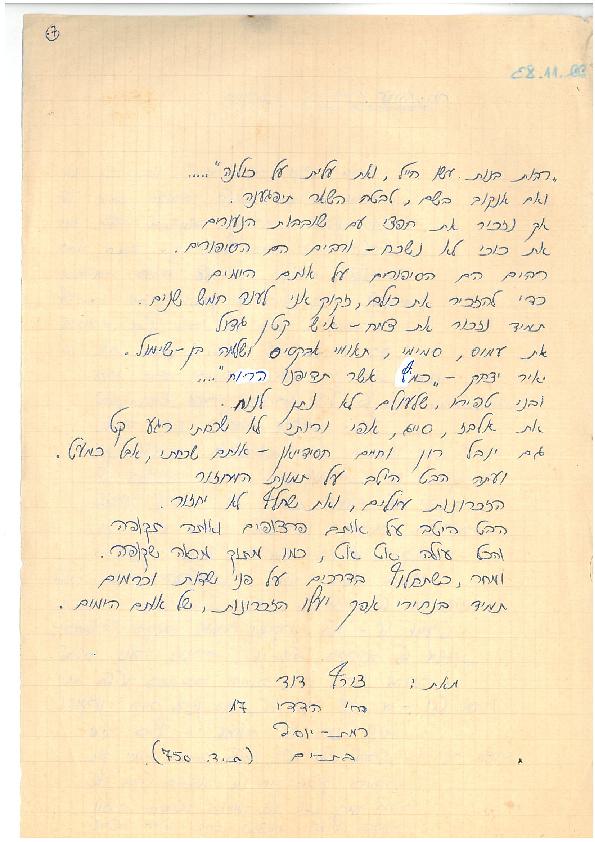 7
28.11.83
"רבות בנות עשו חיל, ואת עלית על כולנה".....
ואם אנקוב בשם, לבטח השאר תיפגענה.
אך נזכיר את חפצי עם שובבות הנעורים
את כוכי לא נשכח – ורבים הם הסיפורים.
רבים הם הסיפורים על אותם הימים
כדי להזכיר את כולם, זקוק אני לעוד חמש שנים.
תמיד נזכור את צלח – איש קטן גדול
את עמוס, סמימי, תאומי אבקסיס ושלמה בן-שימול.
יאיר יצחק – "כמץ אשר תדיפנו הרוח"....
ובני שפירא, שלעולם לא נתן לנוח.
את אלבז, סייג, אפי ורותי לא שכחתי רגע קט
גם יובל רון וחיים חסידיאן – אותם שכחתי, אבל כמעט.
ועתה הבט היטב על תמונת המחזור
הזכרונות עולים, ואת שחלף לא יחזור.
הבט היטב על אותם פרצופים ואותה תקופה
והכל עולה אט אט, כמו מתוך מראה שקופה.
ומחר, כשתחלוף בדרכים על פני שדות וכרמים
תמיד בנחירי אפך יעלו הזכרונות, של אותם הימים.
מאת: צורף דוד
רח' הדדי 17
רמת-יוסף
בת-ים (ת.ד. 750)